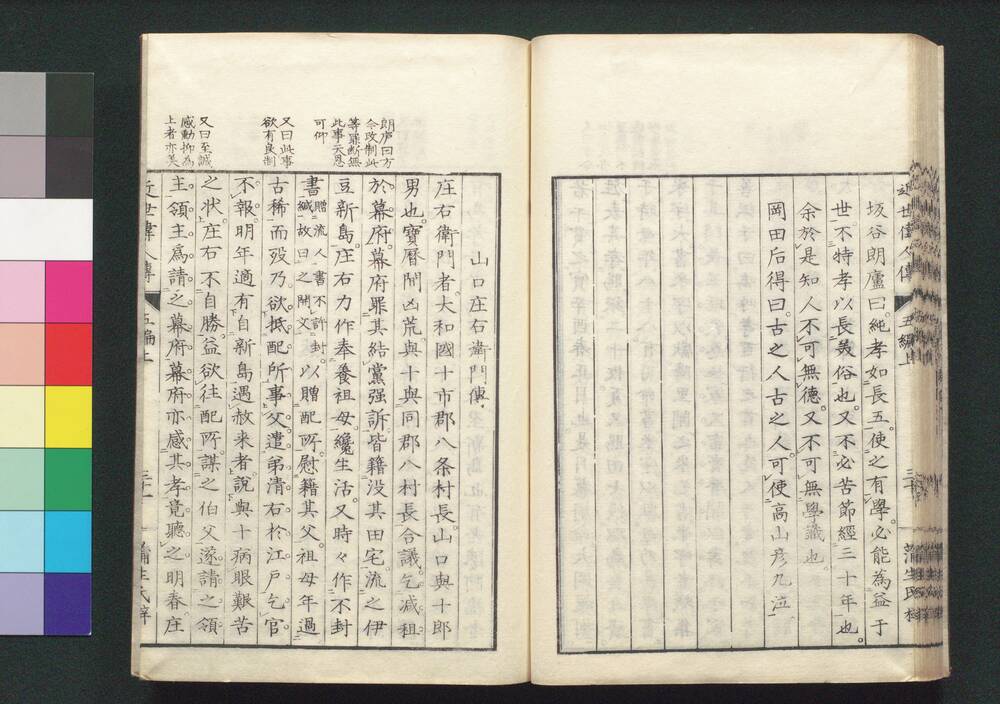 近世偉人傳 五編上 三十 蒲生氏梓
坂谷朗廬曰。純孝如長五。使之有學。必能為益于
世。不特孝以長羙俗也。又不必苦節經三十年也。
余於是知人不可無德。又不可無學識也。
岡田后得曰。古之人古之人。可使高山彥九泣
山口庄右衞門傳
庄右衞門者。大和國十市郡八条村長。山口與十郎
男也。寶曆間凶荒。與十與同郡八村長合議。乞減租
於幕府。幕府罪其結黨强訴。皆籍没其田宅。流之伊
豆新島。庄右力作奉養祖母。纔生活。又時々作不封
書贈流人書不許封緘故曰之開文以贈配所慰籍其父。祖母年過
古稀而歿。乃欲抵配所事父。遣弟清右於江戶乞官
不報。明年適有自新島遇赦来者。說與十病眼艱苦
之状。庄右不自勝。益欲往配所。謀之伯父。遂請之領
主。領主為請之幕府。幕府亦感其孝竟聽之。明春庄
近世偉人傳 五編上 三十一 蒲生氏梓
朗廬曰方
今改制此
等罪断無
此事天恩
可仰
又曰此事
欲有良制
又曰至誠
感動抑為
上者亦美